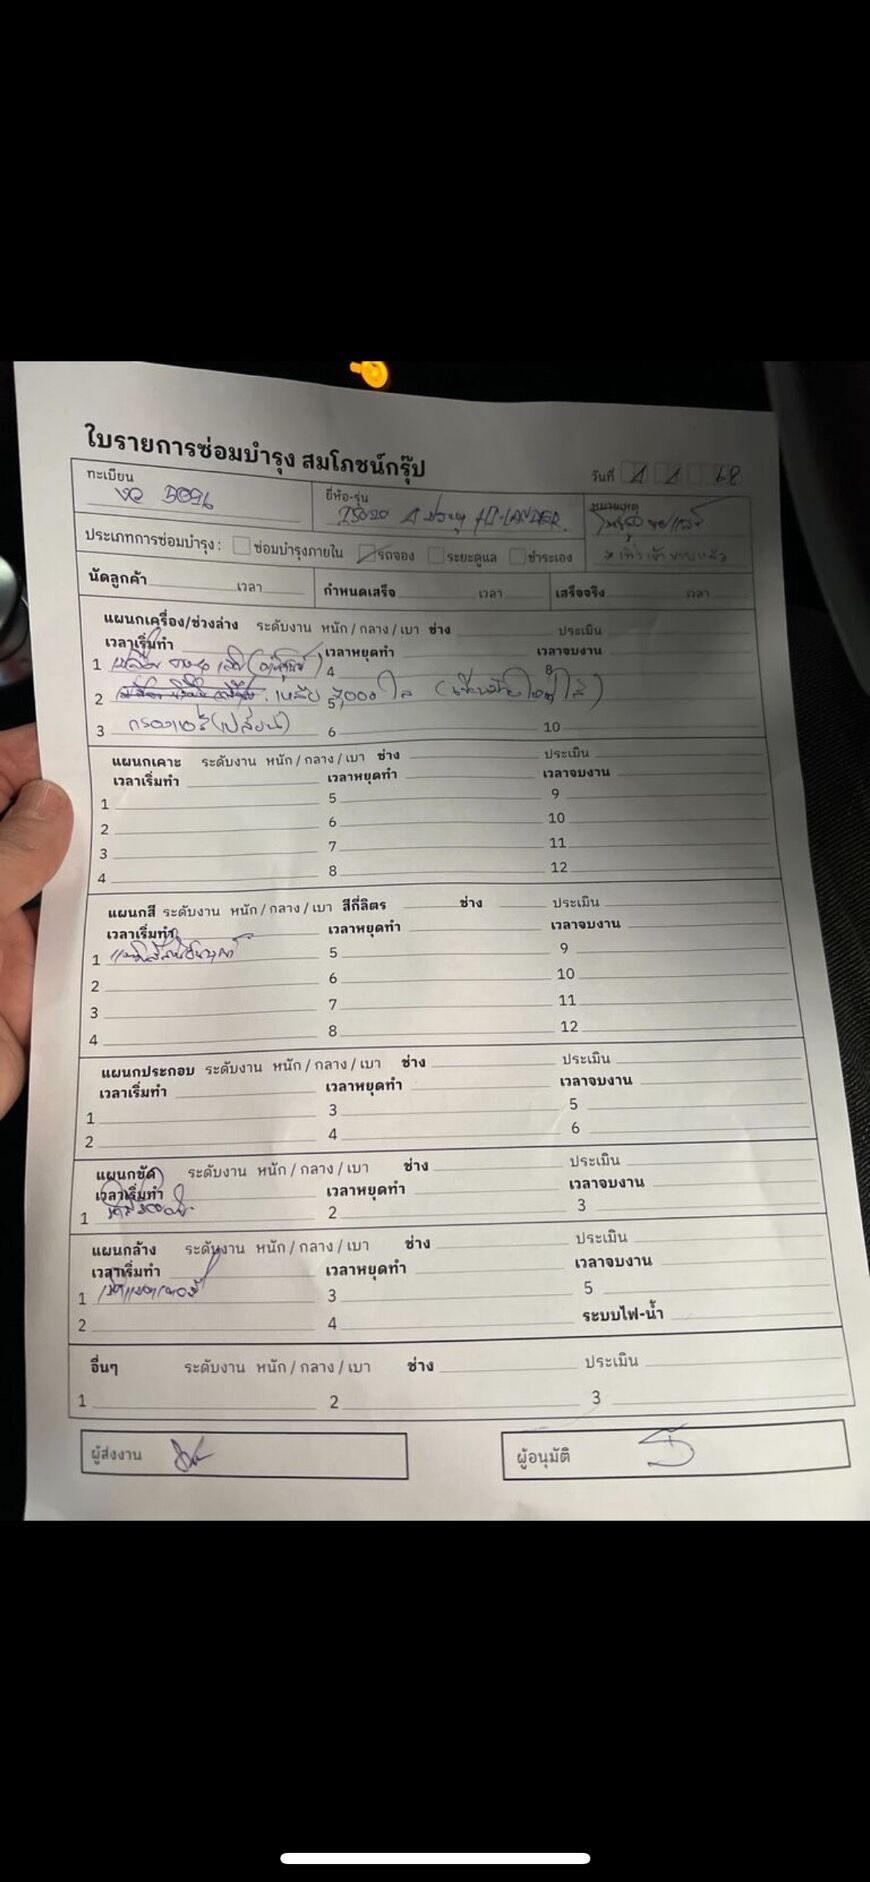 ใบรายการซ่อมบำรุง สมโภชน์กรุ๊ป
วันที่ 1 1 68
ทะเบียน 5096
ยี่ห้อ-รุ่น 4 ประตู HI-LANDER
หมายเหตุ
ประเภทการซ่อมบำรุง : ซ่อมบำรุงภายใน รถจอง ระยะดูแล ชำระเอง
นัดลูกค้า เวลา กำหนดเสร็จ เวลา เสร็จจริง เวลา
แผนกเครื่อง/ช่วงล่าง ระดับงาน หนัก / กลาง / เบา ช่าง ประเมิน
เวลาเริ่มทำ เวลาหยุดทำ เวลาจบงาน
1 4 8
2 เหลือ 5,000 โล 5
3 กรองแอร์ (เปลี่ยน) 6 10
แผนกเคาะ ระดับงาน หนัก / กลาง / เบา ช่าง ประเมิน
เวลาเริ่มทำ เวลาหยุดทำ เวลาจบงาน
1 5 9
2 6 10
3 7 11
4 8 12
แผนกสี ระดับงาน หนัก / กลาง / เบา สีกี่ลิตร ช่าง ประเมิน
เวลาเริ่มทำ เวลาหยุดทำ เวลาจบงาน
1 5 9
2 6 10
3 7 11
4 8 12
แผนกประกอบ ระดับงาน หนัก / กลาง / เบา ช่าง ประเมิน
เวลาเริ่มทำ เวลาหยุดทำ เวลาจบงาน
1 3 5
2 4 6
แผนกขัด ระดับงาน หนัก / กลาง / เบา ช่าง ประเมิน
เวลาเริ่มทำ เวลาหยุดทำ เวลาจบงาน
1 2 3
แผนกล้าง ระดับงาน หนัก / กลาง / เบา ช่าง ประเมิน
เวลาเริ่มทำ เวลาหยุดทำ เวลาจบงาน
1 3 5
2 4 ระบบไฟ-น้ำ
อื่นๆ ระดับงาน หนัก / กลาง / เบา ช่าง ประเมิน
1 2 3
ผู้ส่งงาน ผู้อนุมัติ